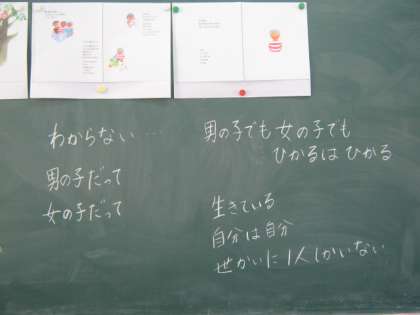 わからない…
男の子だって
女の子だって
男の子でも女の子でも
ひかるはひかる
生きている
自分は自分
せかいに1人しかいない